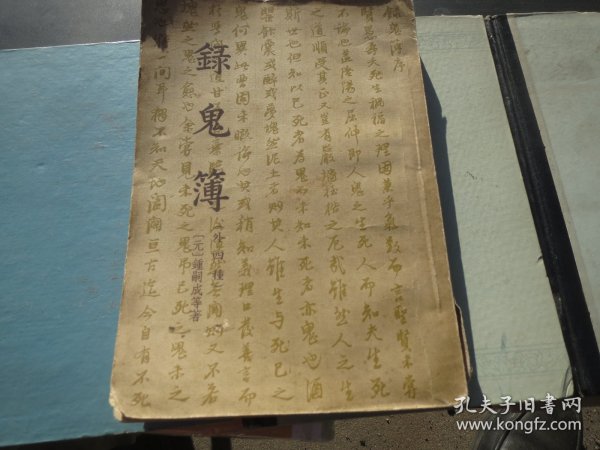 錄鬼簿
(外四種)
〔元〕鍾嗣成等著
錄鬼簿序
賢愚壽夭死生禍福之理固兼乎氣數而言聖賢未嘗
不論也蓋陰陽之屈伸即人鬼之生死人而知夫生死
之道順受其正又豈有巖牆桎梏之厄哉雖然人之生
斯世也但知以已死者為鬼而未知未死者亦鬼也酒
罌飯囊或醉或夢塊然泥土者則其人雖生與死已之
鬼何異此曹固未暇論也其或稍知義理口發善言而
於學問之道甘 則又不若
塊然之鬼之愈也余嘗見未死之鬼弔已死之鬼未之
思也特一間耳獨不知天地開闢亘古迄今自有不死
孔夫子旧书网
www.kongfz.com